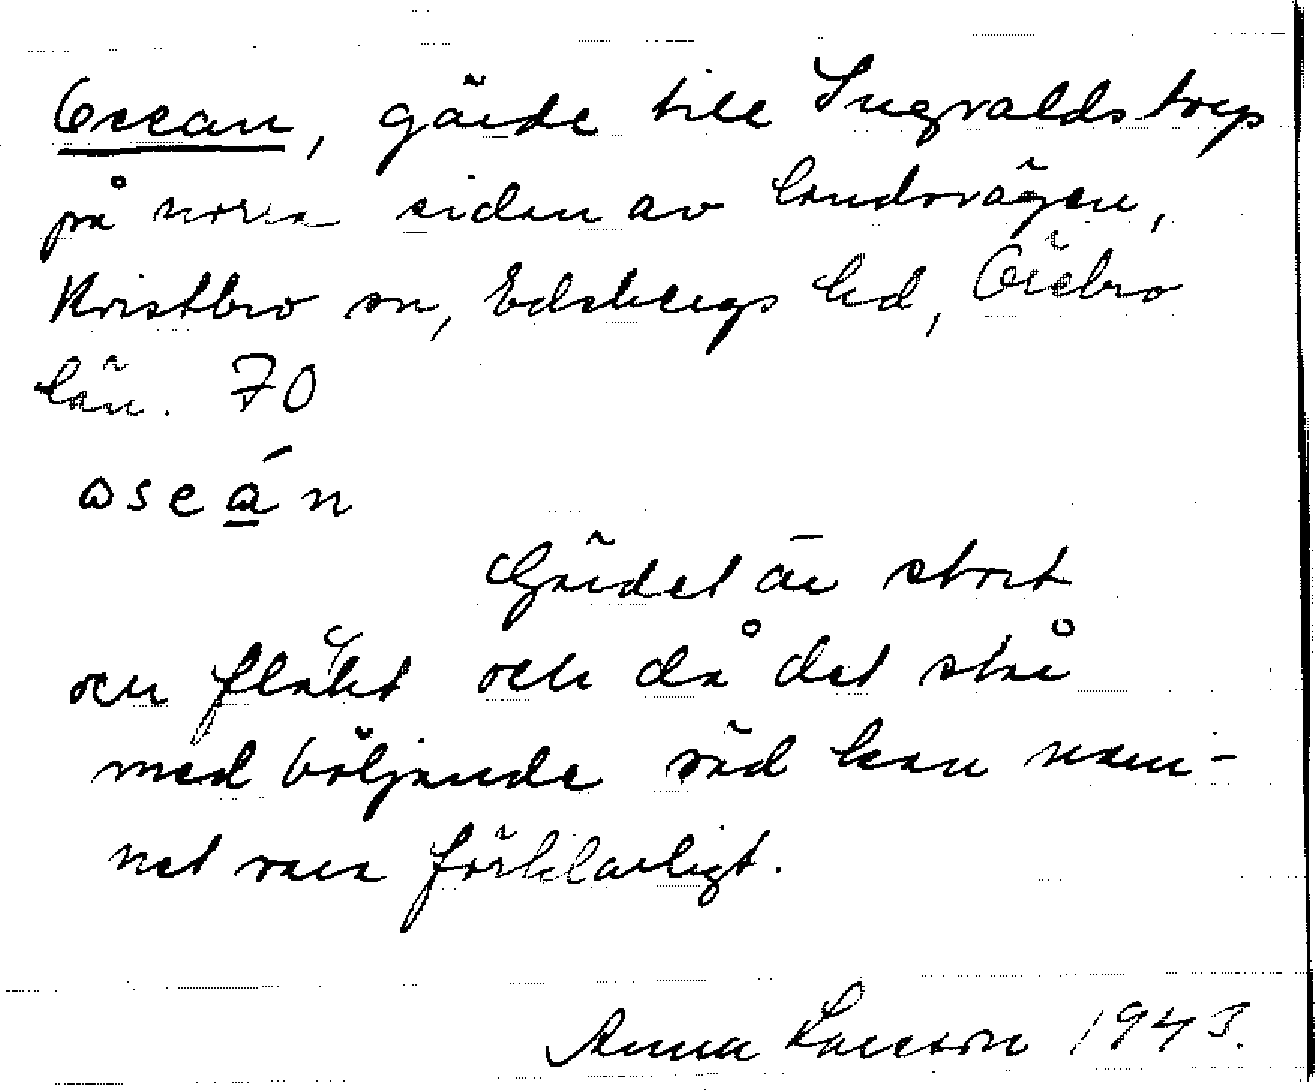 Ocean, gärde till Ingvaldstorp
på norra sidan av landsvägen,
Kvistbro sn, Edsbergs hd, Örebro
län. 70
oseán
Gärdet är stort
och flakt och då det står
med böljande säd kan nam-
net vara förklarligt.
Anna Larsson 1943.